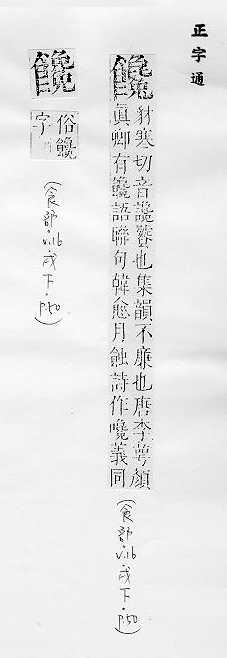 正字通
饞
豺寒切音讒饕也集韻不廉也唐李萼顔
眞卿有饞語聯句韓愈月蝕詩作嚵義同
(食部·v.16戌下·p.50)
俗饞
字
(食部·v.16戌下·p.50)